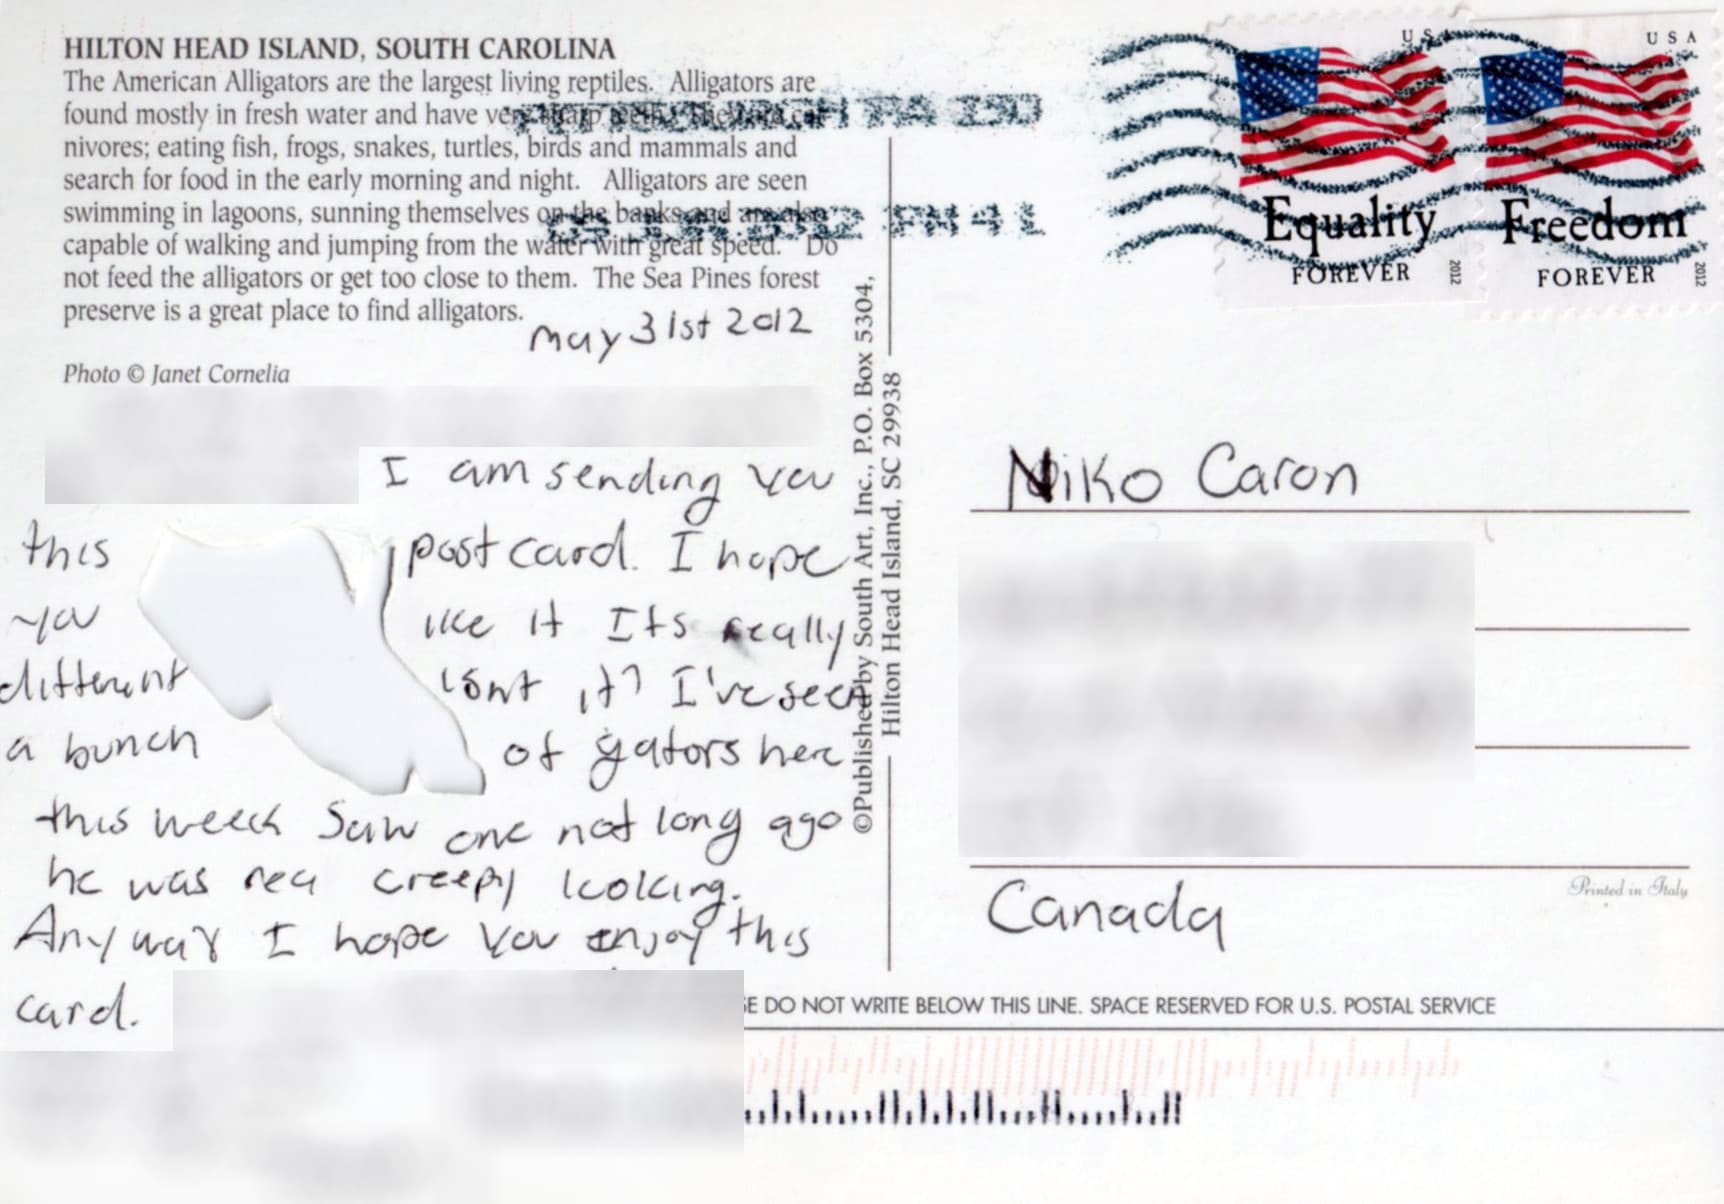 HILTON HEAD ISLAND, SOUTH CAROLINA
The American Alligators are the largest living reptiles. Alligators are
found mostly in fresh water and have very sharp teeth. They are car-
nivores; eating fish, frogs, snakes, turtles, birds and mammals and
search for food in the early morning and night. Alligators are seen
swimming in lagoons, sunning themselves on the banks and are also
capable of walking and jumping from the water with great speed. Do
not feed the alligators or get too close to them. The Sea Pines forest
preserve is a great place to find alligators.
may 31st 2012
Photo © Janet Cornelia
I am sending you
this postcard. I hope
you like it Its really
different isnt it? I've seen
a bunch of gators here
this week Saw one not long ago
he was creepy looking.
Anyway I hope you enjoy this
card.
©Published by South Art, Inc., P.O. Box 5304,
Hilton Head Island, SC 29938
PA 150
2012 PM 4 L
USA
Equality
FOREVER
2012
USA
Freedom
FOREVER
2012
Niko Caron
Canada
Printed in Italy
DO NOT WRITE BELOW THIS LINE. SPACE RESERVED FOR U.S. POSTAL SERVICE